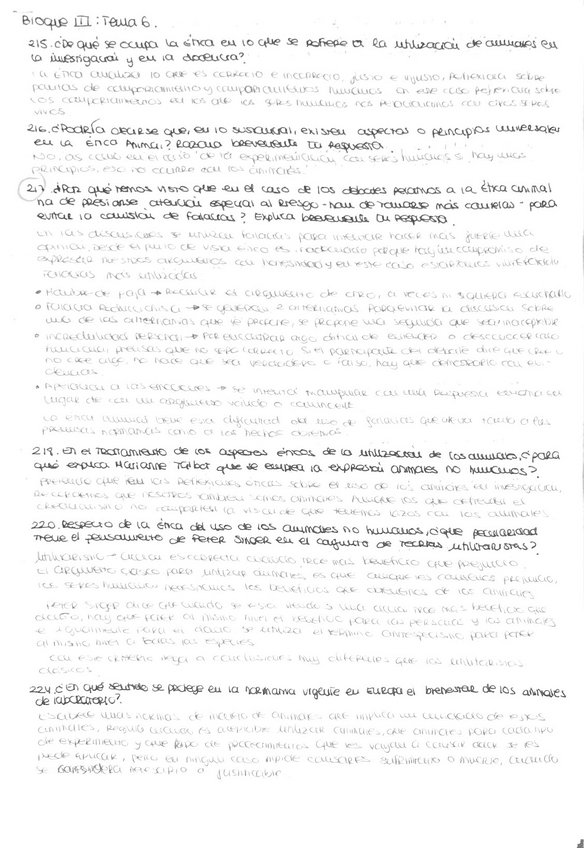 Bloque III: Tema 6.
215. ¿De qué se ocupa la ética en lo que se refiere a la utilización de animales en
la investigación y en la docencia?
La ética analiza lo que es correcto e incorrecto, justo e injusto, reflexiona sobre
pautas de comportamiento y humanos en este caso reflexiona sobre
los comportamientos en los que los seres humanos nos relacionamos con otros seres
vivos.
216. ¿Podría decirse que, en lo sustancial, existen aspectos o principios universales
en la ética animal? Razona brevemente tu respuesta.
No, así como en el caso de la experimentación con seres humanos si hay unos
principios, eso no ocurre con los animales.
217 ¿Por qué hemos visto que en el caso de los debates relativos a la ética animal
ha de prestarse atención especial al riesgo - han de tomarse más cautelas - para
evitar la comisión de falacias? Explica brevemente tu respuesta
En las discusiones se utilizan falacias para intentar hacer más fuerte una
opinión, desde el punto de vista ético es inadecuado porque hay un compromiso de
expresar nuestros argumentos con honestidad y en este caso estaríamos
Falacias más utilizadas
• Hombre de paja → el argumento de otro, a veces ni siquiera
• Falacia → se 2 alternativas Para evitar la discusión sobre
una de las alternativas que se prefiere, se propone una segunda que sea inaceptable
• Incredulidad personal → Por encontrar algo difícil de entender o desconocer
funciona, piensas que no sea correcto. Si el participante del debate dice que cree o
no cree algo, no hace que sea verdadero o falso, hay que demostrarlo con evi-
dencias
• Apelación a las emociones → se intenta manipular con una respuesta emocional en
lugar de con un argumento válido o convincente
La ética animal tiene esta dificultad del uso de falacias que afecta tanto a las
premisas normativas como a los hechos
218. En el tratamiento de los aspectos éticos de la utilización de los animales, ¿para
qué explica Marianne Talbot que se emplea la expresión animales no humanos?
en las reflexiones éticas sobre el uso de los animales en investigación,
que nosotros también somos animales Aunque los que defienden el
creacionismo no comparten la visión de que tenemos lazos con los animales
220. Respecto de la ética del uso de los animales no humanos, ¿qué peculiaridad
tiene el pensamiento de Peter Singer en el conjunto de teorías utilitaristas?
Utilitarismo → acción es correcta cuando trae más beneficio que perjuicio.
El argumento clásico para utilizar animales, es que aunque les causemos perjuicio,
los seres humanos necesitamos los beneficios que obtenemos de los animales
Peter Singer dice que cuando se esta viendo si una acción trae más beneficio que
daño, hay que poner al mismo nivel el beneficio para las personas y los animales
e igualmente para el daño se utiliza el término antiespecismo para poner
al mismo nivel a todas las especies
Con este criterio llega a conclusiones muy diferentes que los utilitaristas
clásicos.
224. ¿En qué sentido se protege en la normativa vigente en Europa el bienestar de los animales
de laboratorio?
Establece unas normas de manejo de animales que implica un cuidado de estos
animales, Regula cuando es aceptable utilizar animales, qué animales para cada tipo
de experimento y que tipo de procedimientos que les vayan a causar dolor se les
puede aplicar, pero en ningún caso impide causarles sufrimiento o muerte, cuando
se considera necesario o justificable.